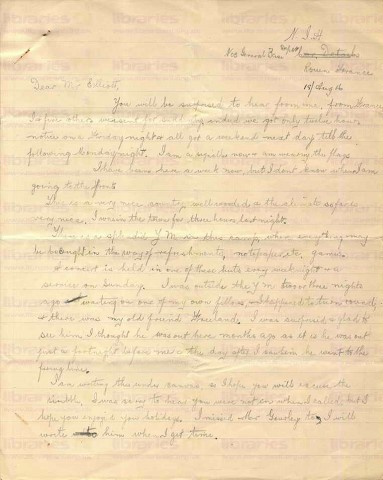 N.Z.
No 2 General Base
Rouen France
15/Aug/16
Dear Mr Elliott,
You will be surprised to hear from me, from France
I & five others were and we got only twelve hours
notice on Friday night & all got a weekend next day till the
following Monday night. I am a signaller now & am wearing the flags
I have been here a week now, but I don't know when I am
going to the front
This is a very nice country, well wooded & the climate so far is
very nice. I was in the town for three hours last night.
There is a splendid Y.M. in this camp, where everything may
be bought in the way of refreshments, notepaper etc, games.
A concert is held in one of these huts every week night & a
service on Sunday. I was outside the Y.M. two or three nights
ago waiting on one of my own fellows, I happened to turn round,
& there was my old friend . I was surprised & glad to
see him I thought he was out here months ago as it is he was out
just a fortnight before me & the day after I seen him he went to the
firing line.
I am writing this under canvas, so I hope you will excuse the
scribble, I was sorry to hear you were not in when I called, but I
hope you enjoyed your holidays. I missed Mr too, I will
write to him when I get time.